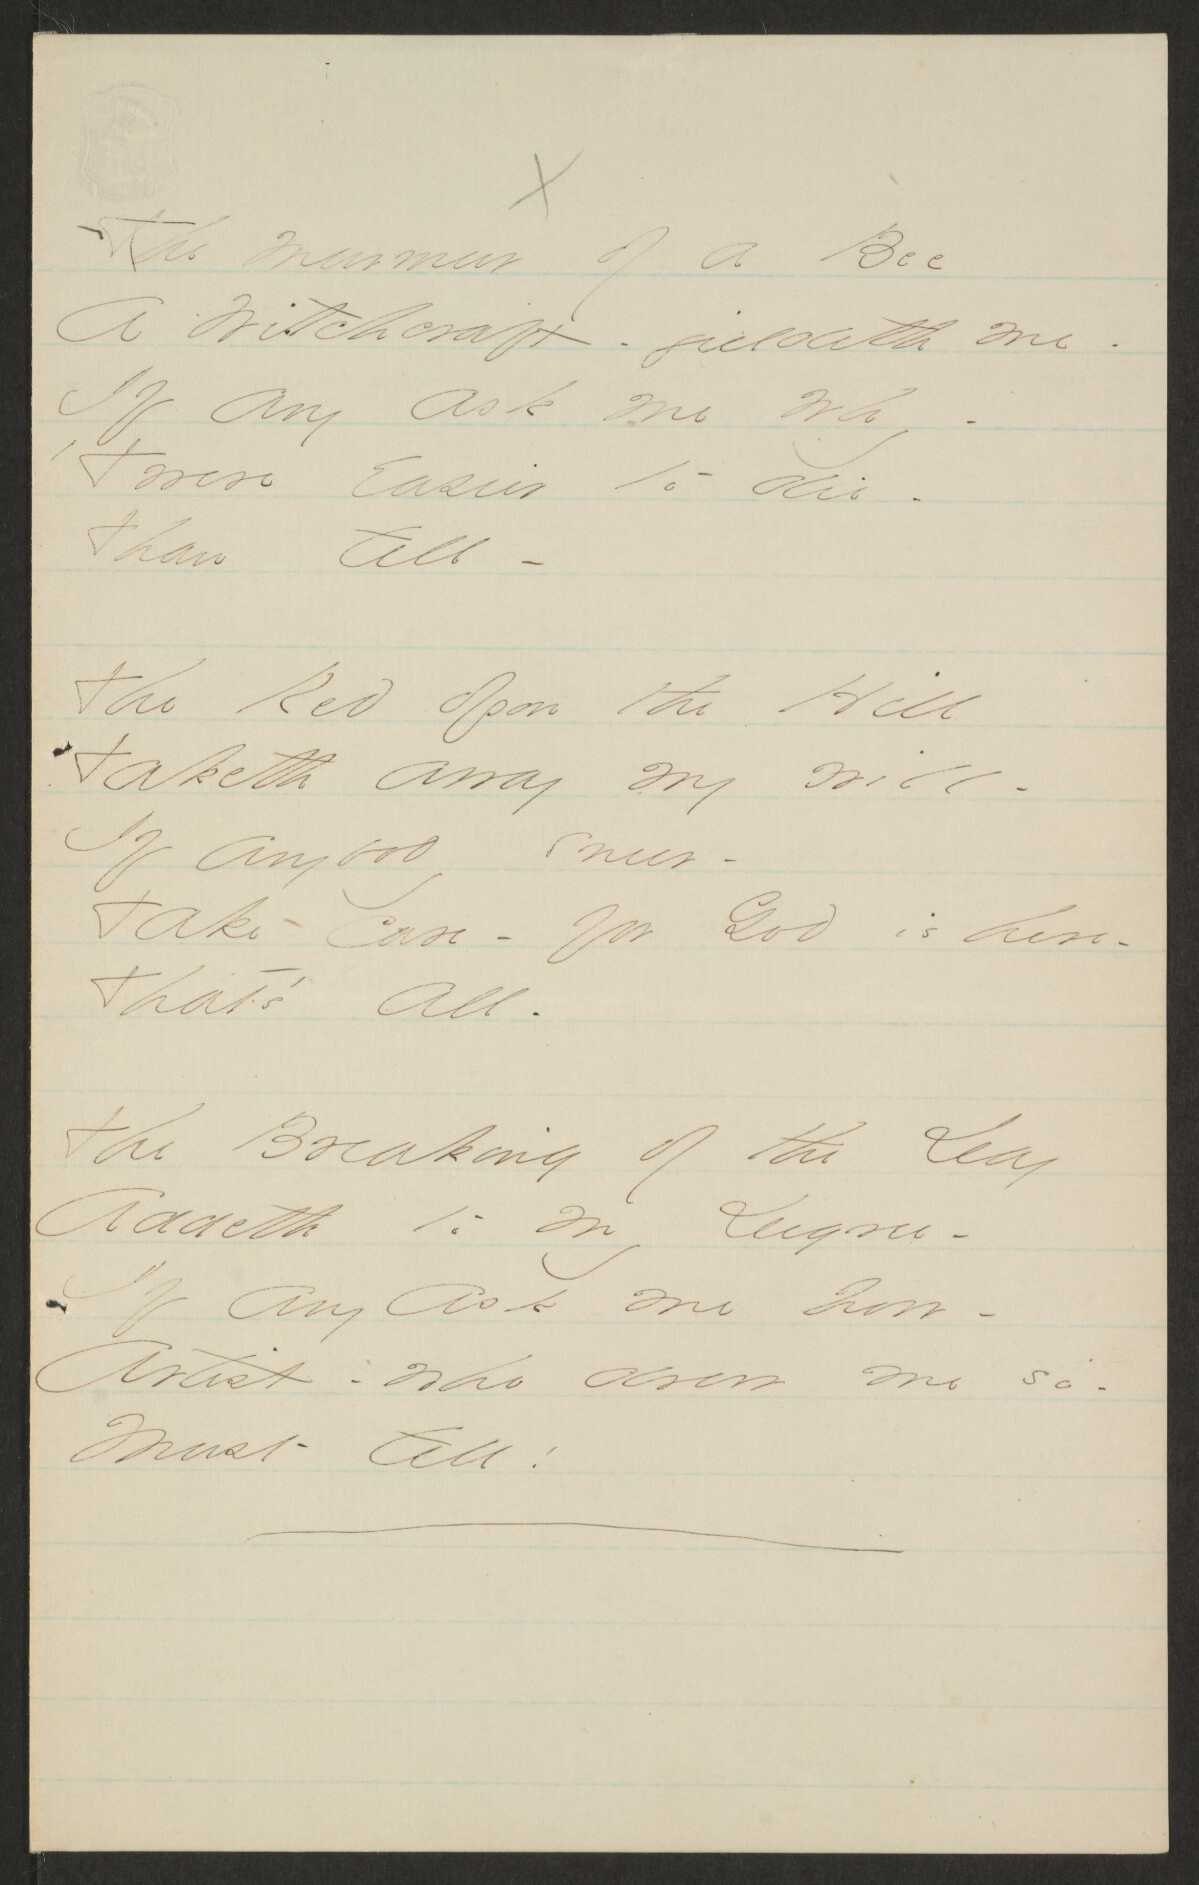 X
The murmur of a Bee
A Witchcraft - yieldeth me -
If any ask me why -
'Twere Easier to die -
Than tell -
The Red opon the Hill
Taketh away my will -
If anybody sneer -
Take care - for God is here -
That's all.
The Breaking of the Day
Addeth to my Degree -
If any ask me how -
Artist - who drew me so -
Must tell!